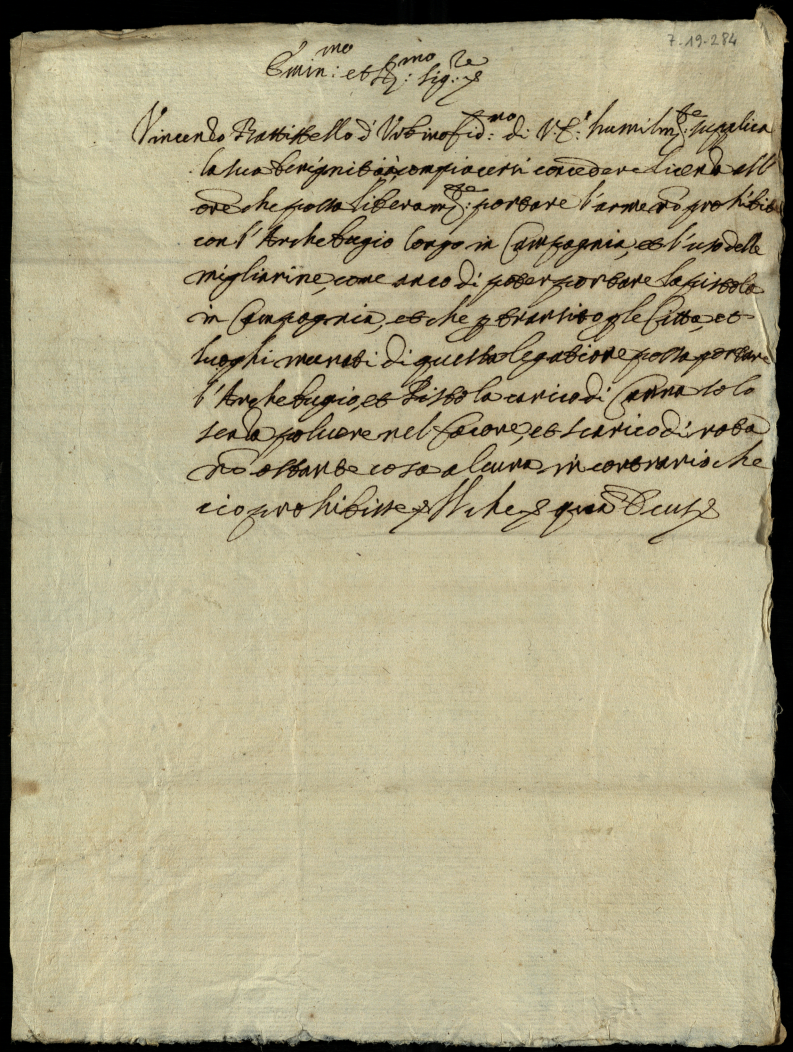 7-19-284
Emin:mo et R:mo Sig:re
Vincenzo Battistello d'Urbino fid:mo di V.E. humilm:te supplica
la sua benignità à compiacersi concedere licenza all'
ore che possa liberam:te portare l'arme nō prohibite
con l'Archebugio longo in Campagnia, et l'uso delle
migliarine, come anco di poter portare la pistola
in Campagnia, et che p transito p le Città, et
luoghi murati di questa legatione possa portare
l'Archebugio, et Pistola carico di Canna solo
senza polvere nel focone, et scarico di rota
nō ostante cosa alcuna in contrario che
cio prohibisse Il che